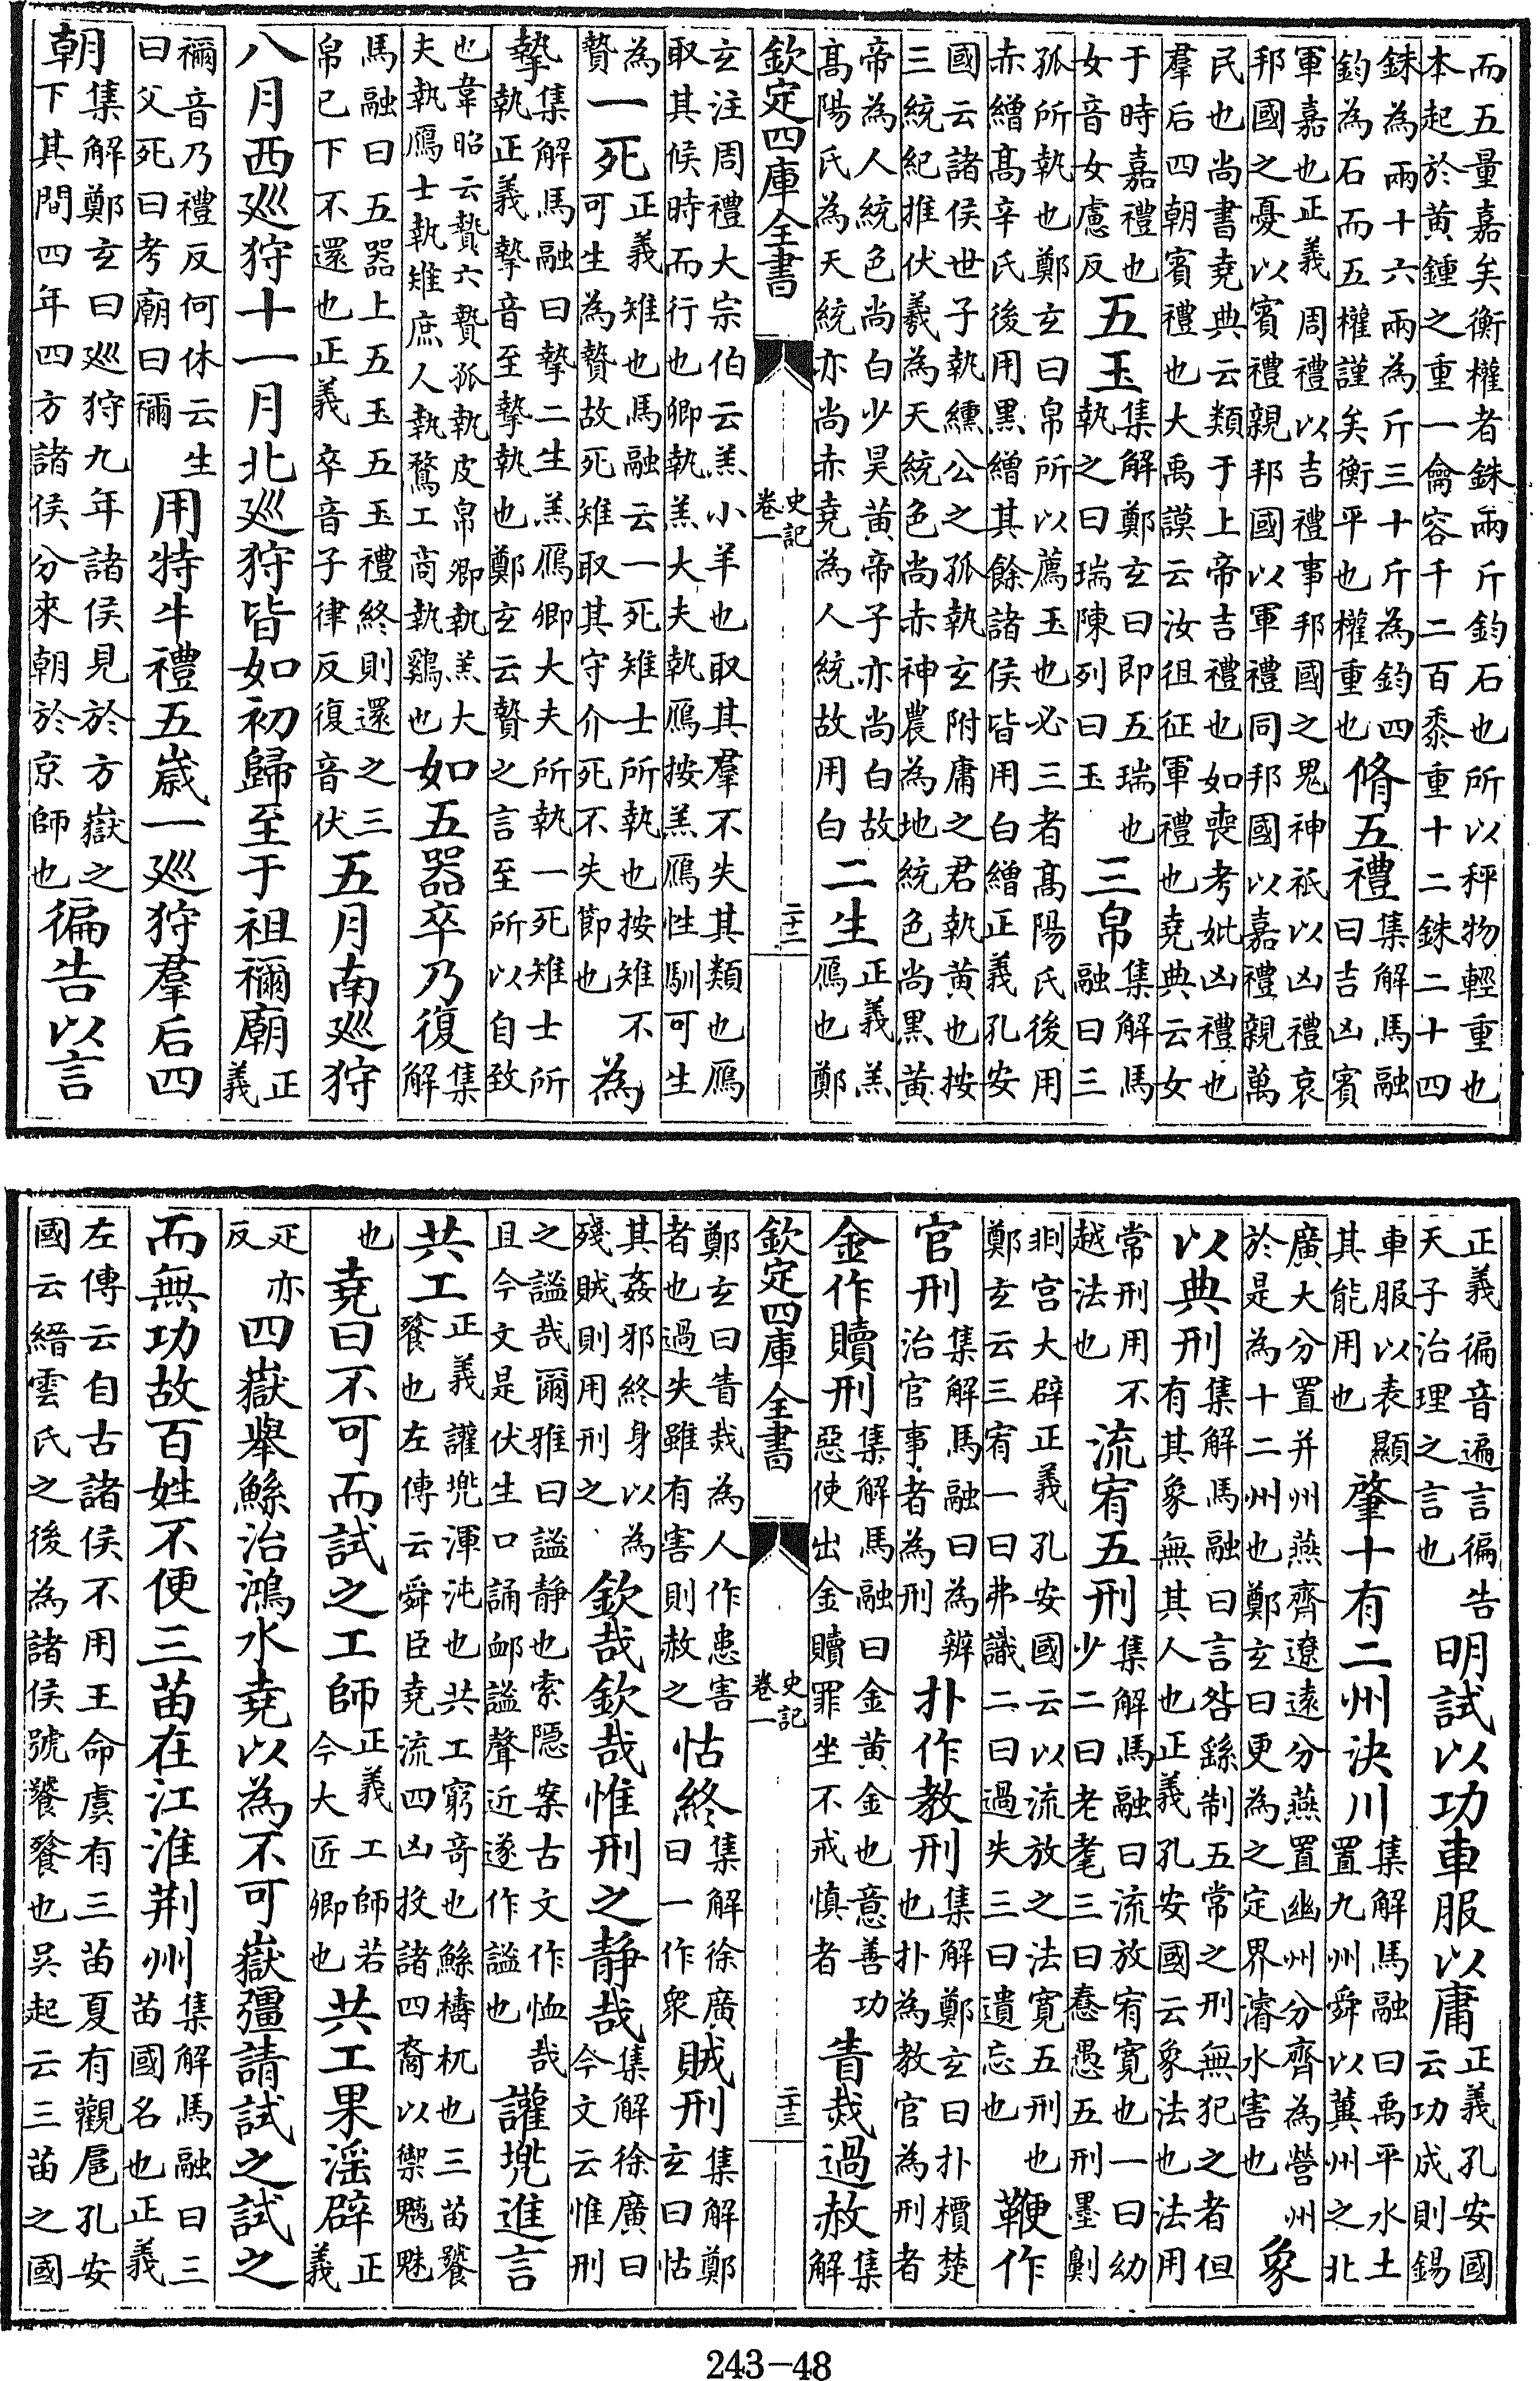 而五量嘉矣衡權者銖兩斤鈞石也所以秤物輕重也
本起於黄鍾之重一龠容千二百黍重十二銖二十四
銖為兩十六兩為斤三十斤為鈞四
鈞為石而五權謹矣衡平也權重也
脩五禮
集解馬融
曰吉凶賓
軍嘉也正義周禮以吉禮事邦國之鬼神祇以凶禮哀
邦國之憂以賓禮親邦國以軍禮同邦國以嘉禮親萬
民也尚書堯典云類于上帝吉禮也如喪考妣凶禮也
羣后四朝賓禮也大禹謨云汝徂征軍禮也堯典云女
于時嘉禮也
女音女慮反
五玉
集解鄭玄曰即五瑞也
執之曰瑞陳列曰玉
三帛
集解馬
融曰三
孤所執也鄭玄曰帛所以薦玉也必三者高陽氏後用
赤繒高辛氏後用黑繒其餘諸侯皆用白繒正義孔安
國云諸侯世子執纁公之孤執玄附庸之君執黄也按
三統紀推伏羲為天統色尚赤神農為地統色尚黑黄
帝為人統色尚白少昊黄帝子亦尚白故
高陽氏為天統亦尚赤堯為人統故用白
二生
正義羔
鴈也鄭
欽定四庫全書
史記
卷一
二十二
玄注周禮大宗伯云羔小羊也取其羣不失其類也鴈
取其候時而行也卿執羔大夫執鴈按羔鴈性馴可生
為
贄
一死
正義雉也馬融云一死雉士所執也按雉不
可生為贄故死雉取其守介死不失節也
為
摯
集解馬融曰摯二生羔鴈卿大夫所執一死雉士所
執正義摯音至摯執也鄭玄云贄之言至所以自致
也韋昭云贄六贄孤執皮帛卿執羔大
夫執鴈士執雉庶人執鶩工商執鷄也
如五器卒乃復
集
解
馬融曰五器上五玉五玉禮終則還之三
帛已下不還也正義卒音子律反復音伏
五月南廵狩
八月西廵狩十一月北廵狩皆如初歸至于祖禰廟
正
義
禰音乃禮反何休云生
曰父死曰考廟曰禰
用特牛禮五嵗一廵狩羣后四
朝
集解鄭玄曰廵狩九年諸侯見於方嶽之
下其間四年四方諸侯分來朝於京師也
徧告以言
正義徧音遍言徧告
天子治理之言也
明試以功車服以庸
正義孔安國
云功成則錫
車服以表顯
其能用也
肇十有二州決川
集解馬融曰禹平水土
置九州舜以冀州之北
廣大分置并州燕齊遼遠分燕置幽州分齊為營州
於是為十二州也鄭玄曰更為之定界濬水害也
象
以典刑
集解馬融曰言咎繇制五常之刑無犯之者但
有其象無其人也正義孔安國云象法也法用
常刑用不
越法也
流宥五刑
集解馬融曰流放宥寛也一曰幼
少二曰老耄三曰惷愚五刑墨劓
剕宫大辟正義孔安國云以流放之法寛五刑也
鄭玄云三宥一曰弗識二曰過失三曰遺忘也
鞭作
官刑
集解馬融曰為辨
治官事者為刑
扑作教刑
集解鄭玄曰扑檟楚
也扑為教官為刑者
金作贖刑
集解馬融曰金黄金也意善功
惡使出金贖罪坐不戒慎者
眚烖過赦
集
解
欽定四庫全書
史記
卷一
二十三
鄭玄曰眚烖為人作患害
者也過失雖有害則赦之
怙終
集解徐廣
曰一作衆
賊刑
集解鄭
玄曰怙
其姦邪終身以為
殘賊則用刑之
欽哉欽哉惟刑之静哉
集解徐廣曰
今文云惟刑
之謐哉爾雅曰謐静也索隱案古文作恤哉
且今文是伏生口誦卹謐聲近遂作謐也
讙兜進言
共工
正義讙兜渾沌也共工窮竒也鯀檮杌也三苗饕
餮也左傳云舜臣堯流四凶投諸四裔以禦魑魅
也
堯曰不可而試之工師
正義工師若
今大匠卿也
共工果淫辟
正
義
疋亦
反
四嶽舉鯀治鴻水堯以為不可嶽彊請試之試之
而無功故百姓不便三苗在江淮荆州
集解馬融曰三
苗國名也正義
左傳云自古諸侯不用王命虞有三苗夏有觀扈孔安
國云縉雲氏之後為諸侯號饕餮也吳起云三苗之國
243-48